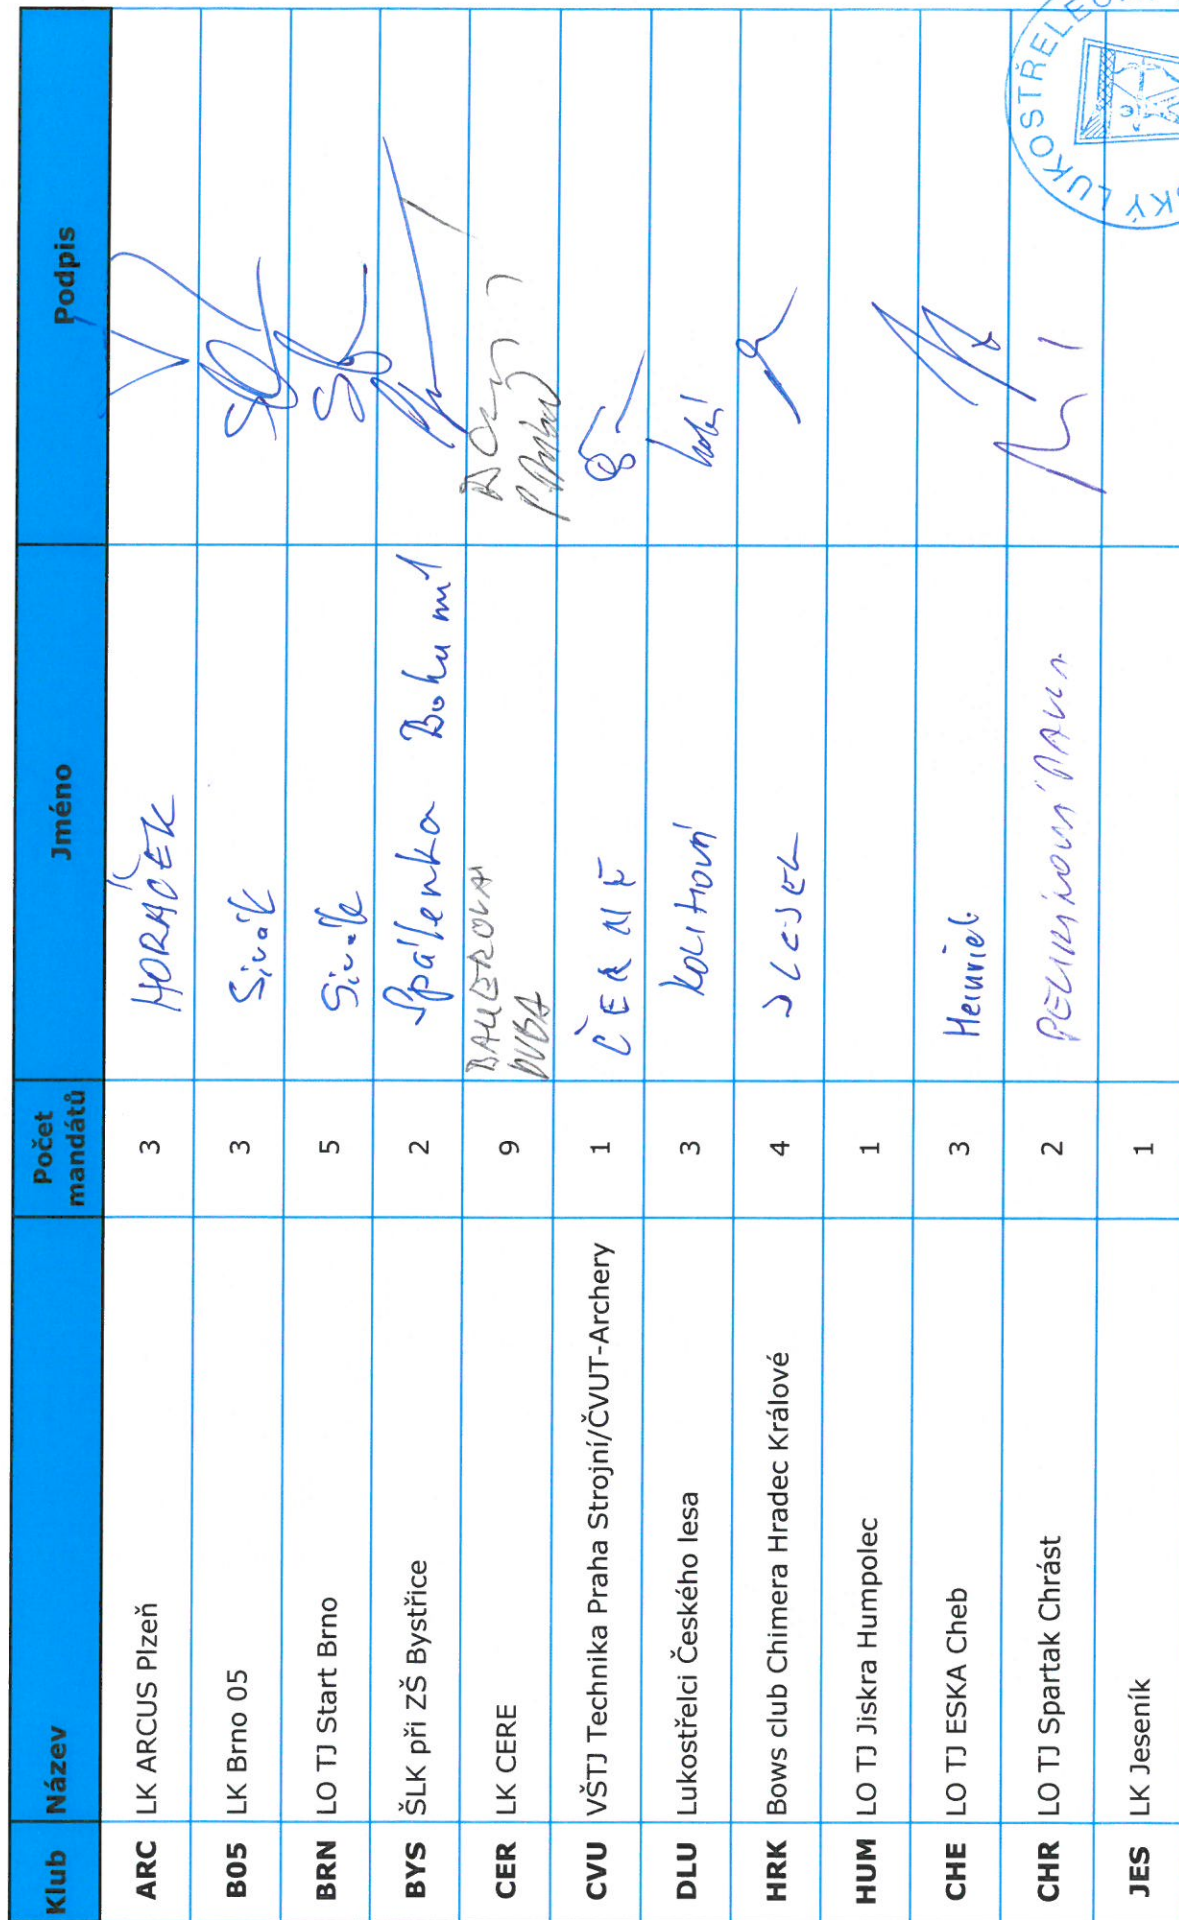 Klub Název Počet mandátů Jméno Podpis
ARC LK ARCUS Plzeň 3 HORÁČEK
B05 LK Brno 05 3 Sivák
BRN LO TJ Start Brno 5 Sivák
BYS ŠLK při ZŠ Bystřice 2 Spálenka Bohumil
CER LK CERE 9 BAUEROVÁ
DUBA
CVU VŠTJ Technika Praha Strojní/ČVUT-Archery 1
DLU Lukostřelci Českého lesa 3
HRK Bows club Chimera Hradec Králové 4
HUM LO TJ Jiskra Humpolec 1
CHE LO TJ ESKA Cheb 3
CHR LO TJ Spartak Chrást 2
JES LK Jeseník 1